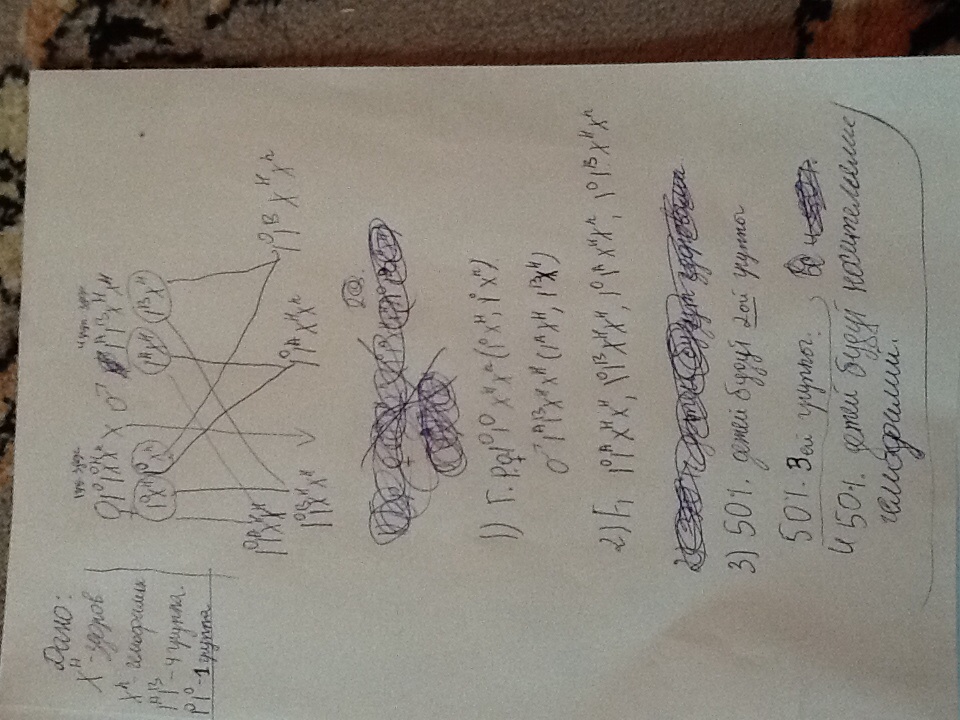 Дано:
X^H - здоров
X^h - гемофилия
I^A I^B - 4 группа.
I^0 I^0 - 1 группа
1 гр. здор. 4 гр. здор.
♀ I^0 I^0 X^H X^h x ♂ I^A I^B X^H X^H
I^0 X^H I^0 X^h I^A X^H I^B X^H
I^0 I^A X^H X^h I^0 I^B X^H X^h
I^0 I^B X^H X^H
1) Г. P. ♀ I^0 I^0 X^H X^h (I^0 X^H, I^0 X^h)
♂ I^A I^B X^H X^H (I^A X^H, I^B X^H)
2) F1 I^0 I^A X^H X^H, I^0 I^B X^H X^H, I^0 I^A X^H X^h, I^0 I^B X^H X^h
3) 50%. детей будут 2ой группы
50%. 3ей группы.
И 50%. детей будут носителями
гемофилии.